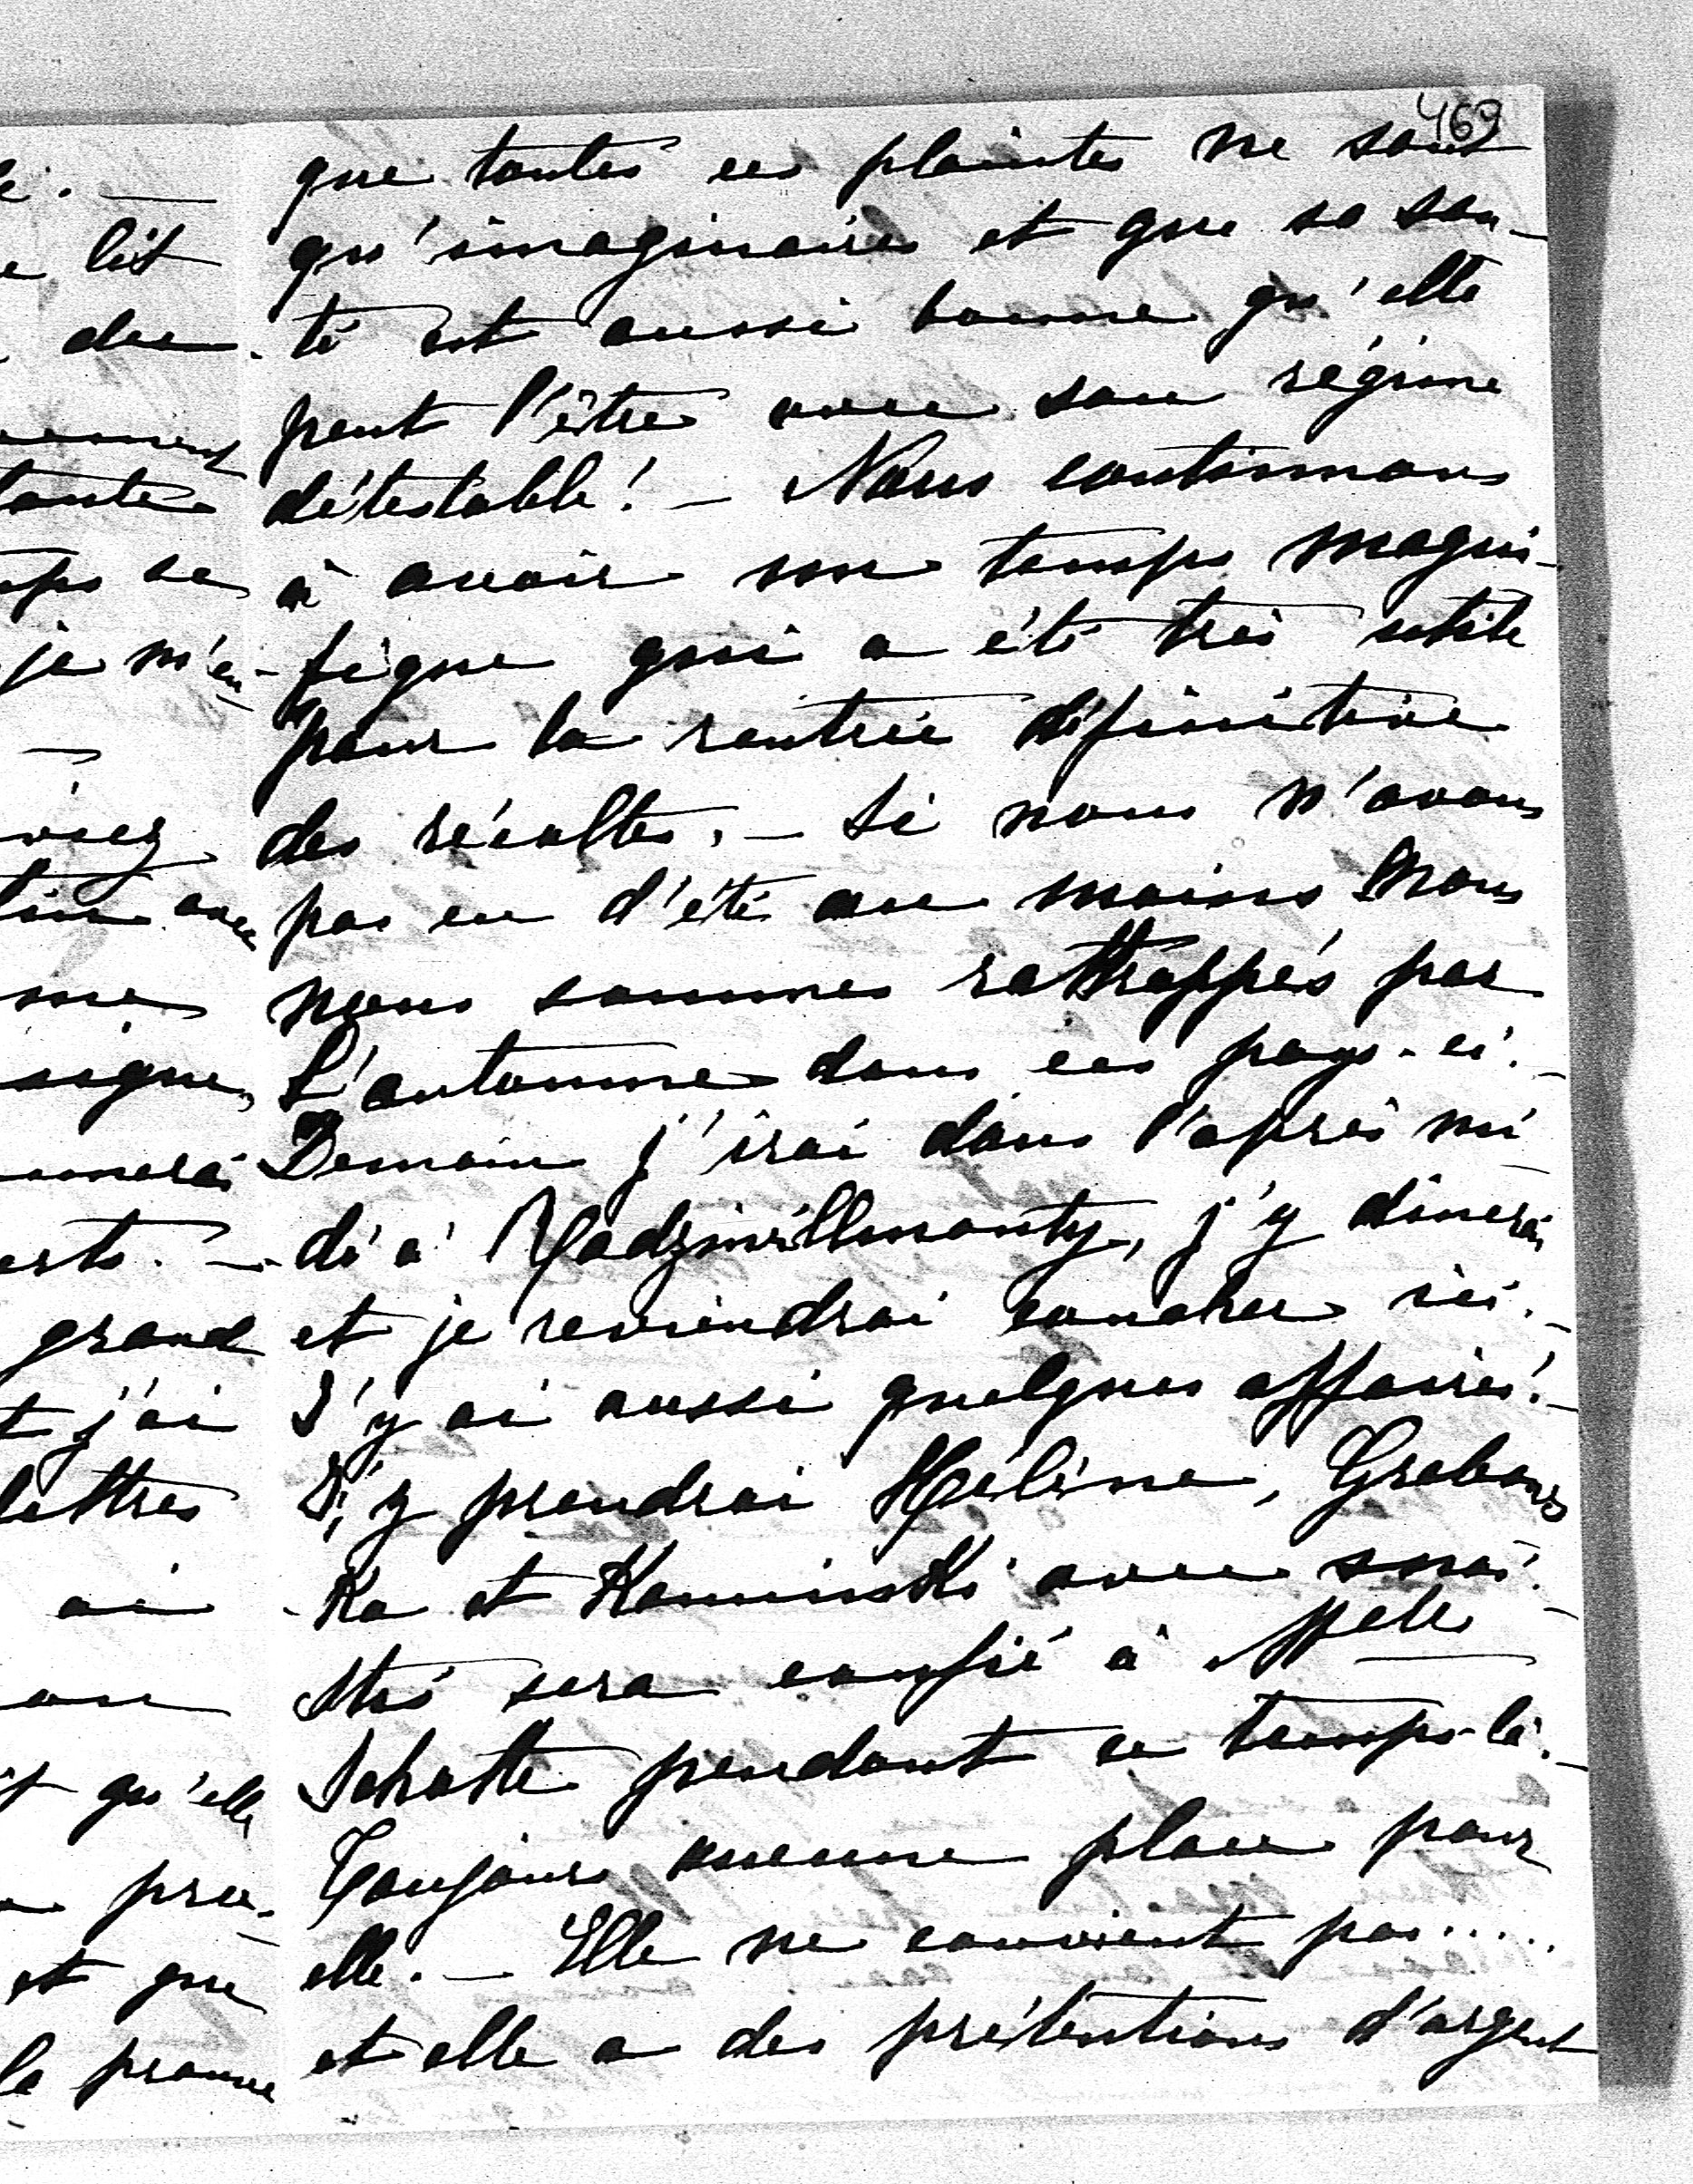 469
que toutes ces plaintes ne sont
qu'imaginaires et que sa san-
té est aussi bonne qu'elle
peut l'être avec son régime
détestable! – Nous continuons
à avoir un temps magni-
fique qui a été très utile
pour la rentrée définitive
des récoltes. – Si nous n'avons
pas eu d'été au moins nous
nous sommes rattrappés par
l'automne dans ces pays-ci. –
Demain j'irai dans l'après mi
di à Radziwillmonty, j'y dinerai
et je reviendrai coucher ici. –
J'y ai aussi quelques affaires. –
J'y prendrai Hélène, Grabows
Ka et Kaminski avec moi. –
sera confié à Melle
Schatte pendant ce temps-là. –
Toujours aucune place pour
elle. – Elle ne convient pas.....
et elle a des prétentions d'argent
lit
je m'en
avec
signe
grand
t j'ai
lettres
ai
qu'elle
et que